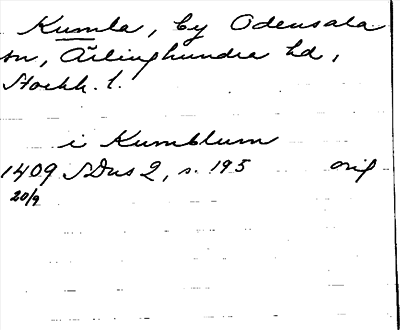 Kumla, by Odensala
sn, Ärlinghundra hd,
Stockh. l.
i Kumblum
1409 SDns 2, s. 195 orig
20/9